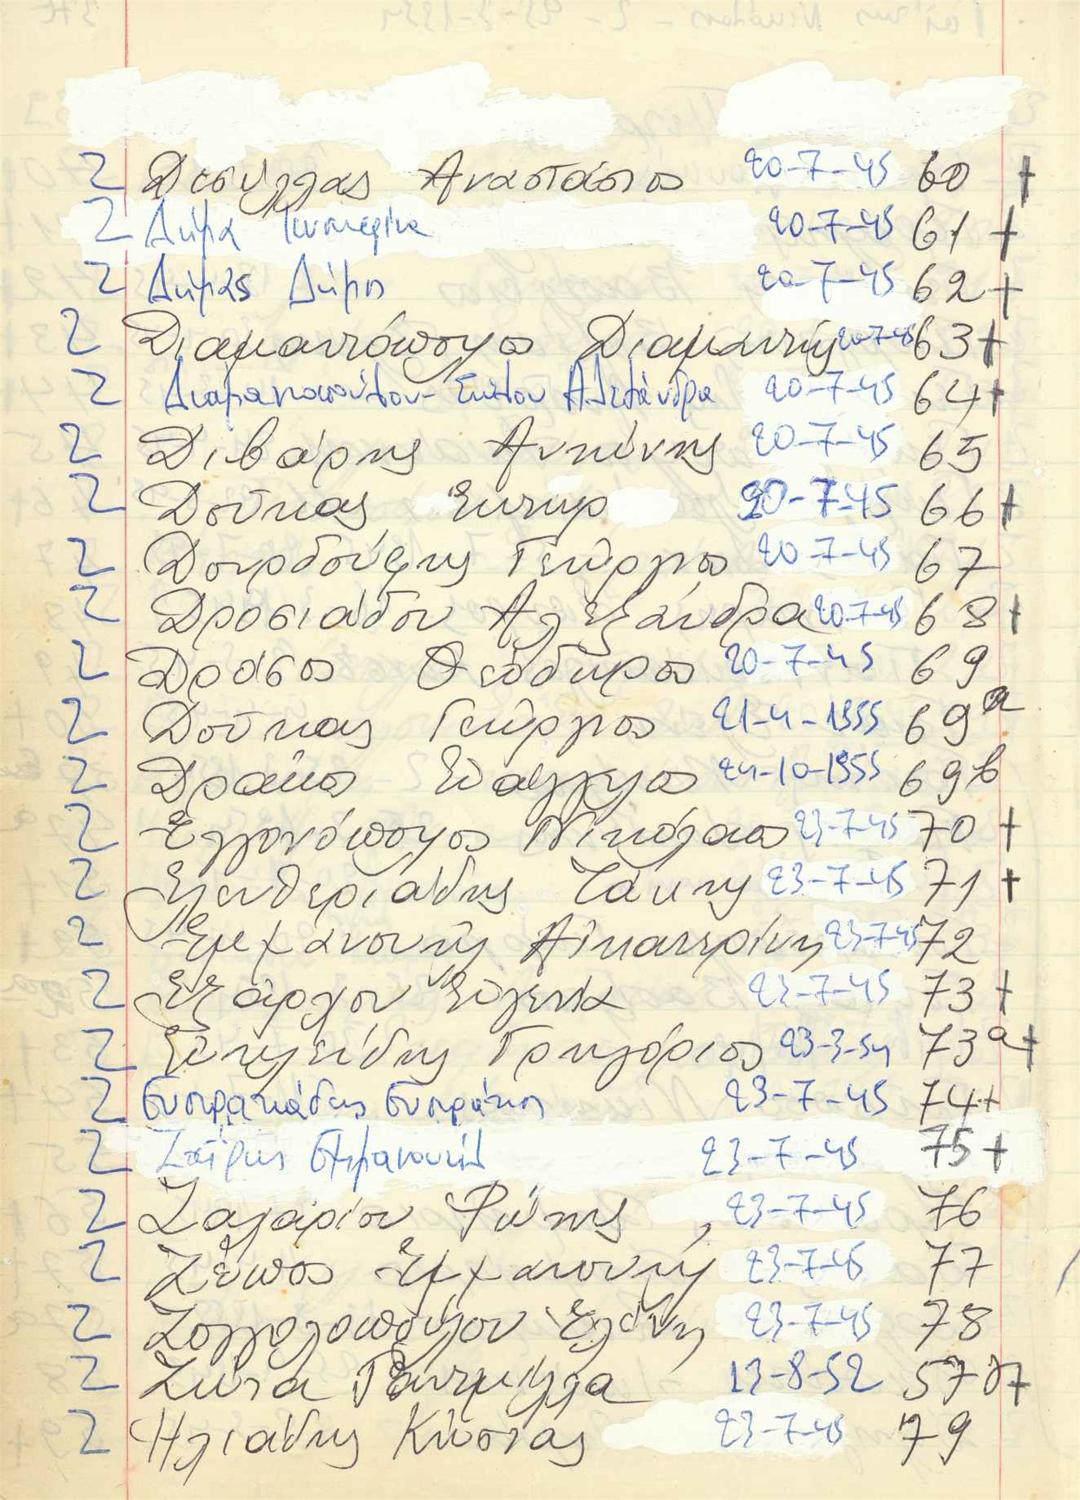 2 Δεσύλλας Αναστάσιος 20-7-45 60 +
2 Δήμα 20-7-45 61 +
2 Δήμας Δήμος 20-7-45 62 +
2 Διαμαντόπουλος Διαμαντής 20-7-45 63 +
2 Διαμαντοπούλου- Αλεξάνδρα 20-7-45 64 +
2 Διβάρης Αντώνης 20-7-45 65
2 Δούκας Έκτωρ 20-7-45 66 +
2 Δουρδούφης Γεώργιος 20-7-45 67
2 Δροσιάδου Αλεξάνδρα 20-7-45 68 +
2 Δρόσος Θεόδωρος 20-7-45 69
2 Δούκας Γεώργιος 21-4-1955 69α
2 Δράκος Ευάγγελος 24-10-1955 69β
2 Εγγονόπουλος Νικόλαος 23-7-45 70 +
2 Ελευθεριάδης Τάκης 23-7-45 71 +
2 Εμμανουήλ Αικατερίνη 23-7-45 72
2 Εξάρχου Ευγενία 23-7-45 73 +
2 Ευκλείδης Γρηγόριος 23-3-54 73α +
2 Ευστρατιάδης Ευστράτιος 23-7-45 74 +
2 Ζαΐρης Εμμανουήλ 23-7-45 75 +
2 Ζαχαρίου Φώτης 23-7-45 76
2 Ζέπος Εμμανουήλ 23-7-45 77
2 Ζογγολοπούλου Ελένη 23-7-45 78
2 13-8-52
2 Ηλιάδης Κώστας 23-7-45 79